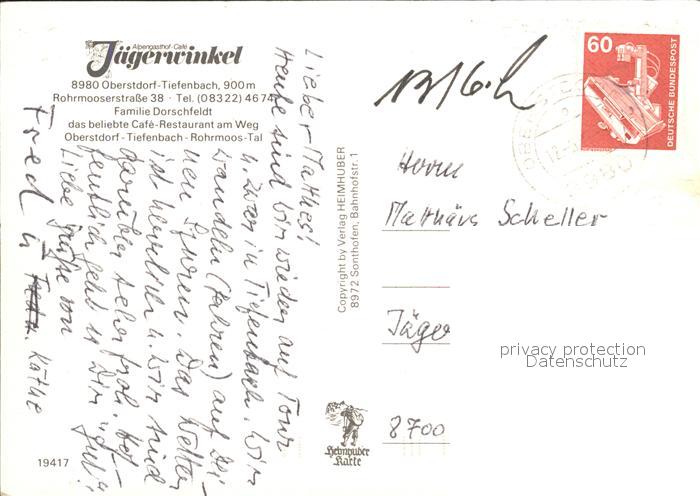 Alpengasthof-Café
Jägerwinkel
8980 Oberstdorf-Tiefenbach, 900 m
Rohrmooserstraße 38 · Tel. (08322) 46 74
Familie Dorschfeldt
das beliebte Café-Restaurant am Weg
Oberstdorf - Tiefenbach - Rohrmoos-Tal
Lieber Matthes!
Heute sind wir wieder auf Tour
u. zwar in Tiefenbach. Wir
wandeln (fahren) auf Dei-
nen Spuren. Das Wetter
ist herrlich u. wir sind
darüber sehr froh. Hof-
fentlich geht es Dir gut!
Liebe Grüße von
Fred u. Käthe
19417
Copyright by Verlag HEIMHUBER
8972 Sonthofen, Bahnhofstr. 1
Heimhuber
Karte
60
DEUTSCHE BUNDESPOST
Herrn
Matthäus Scheller
Jäger
8700
privacy protection
Datenschutz